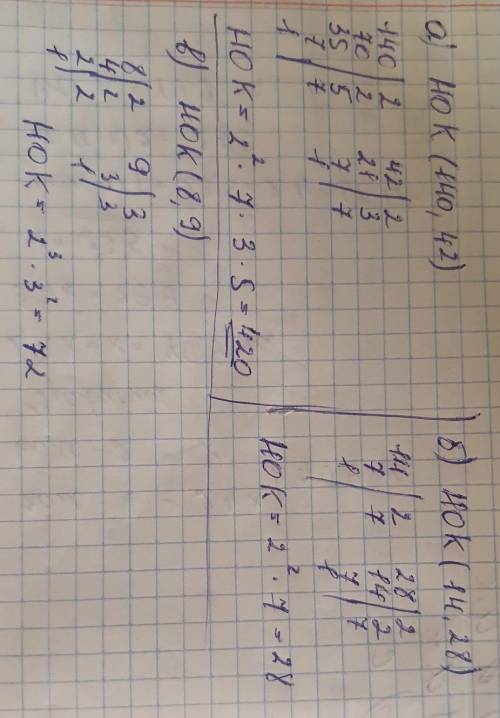 а) НОК (140, 42)
140 | 2    42 | 2
70 | 2    21 | 3
35 | 5    7 | 7
7 | 7    1
1
НОК = 2² · 7 · 3 · 5 = 420
б) НОК (14, 28)
14 | 2    28 | 2
7 | 7    14 | 2
1    7 | 7
1
НОК = 2² · 7 = 28
в) НОК (8, 9)
8 | 2    9 | 3
4 | 2    3 | 3
2 | 2    1
1
НОК = 2³ · 3² = 72